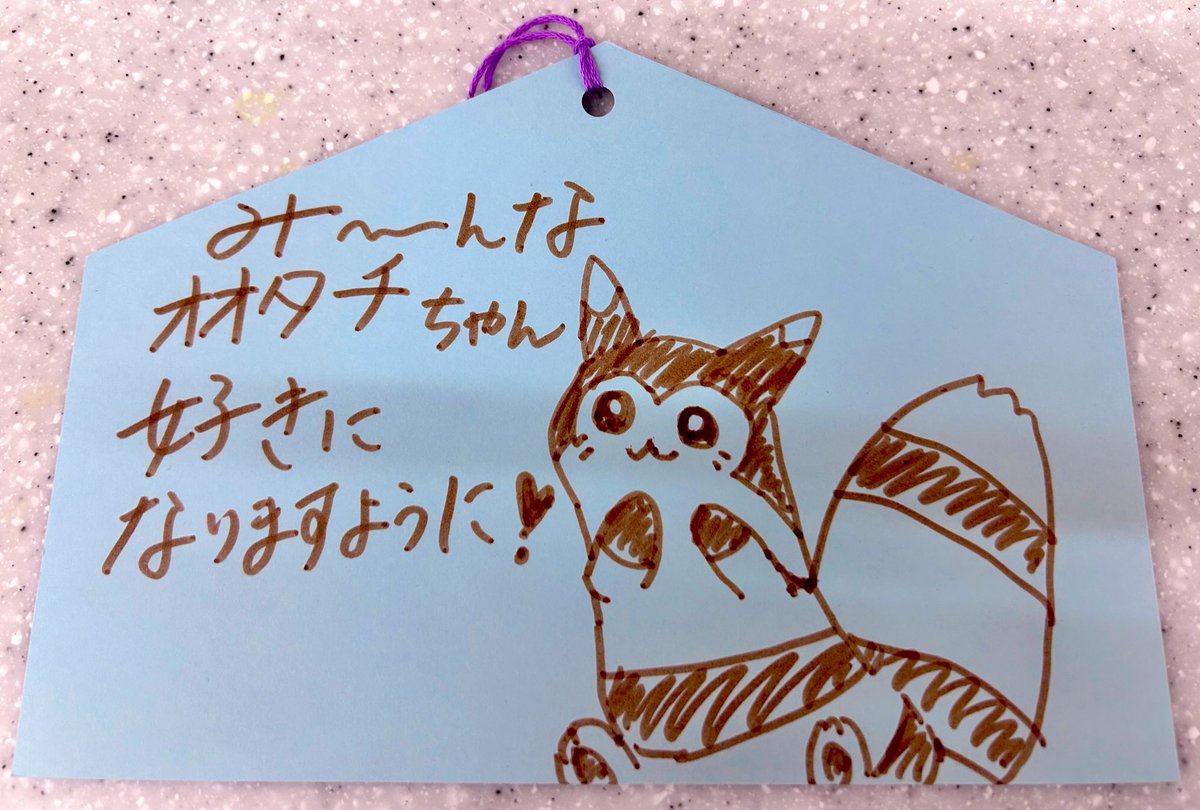 み〜んな
オオタチちゃん
好きに
なりますように!